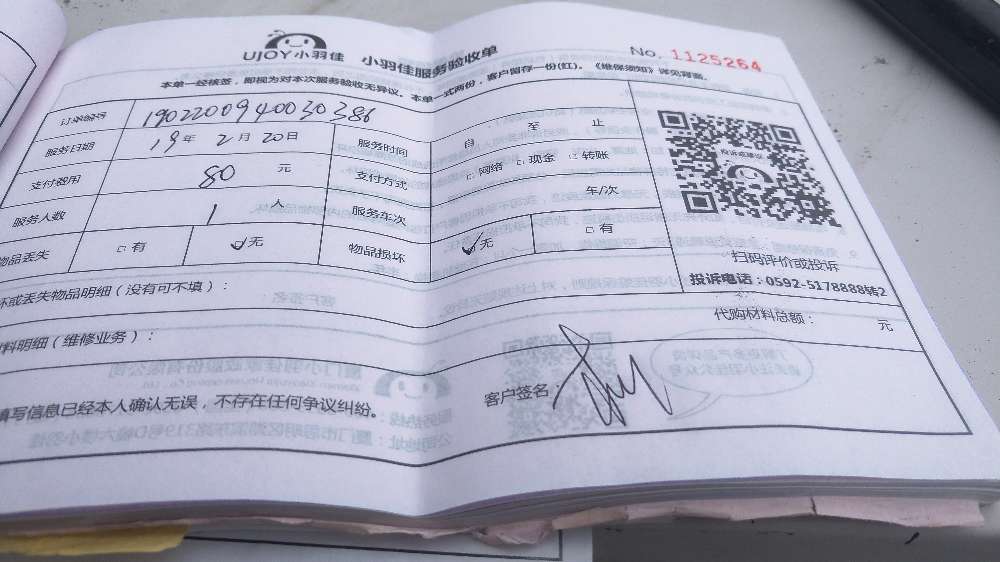 UJOY小羽佳 小羽佳服务验收单 No. 1125264
本单一经核签，即视为对本次服务验收无异议。本单一式两份，客户留存一份(红)。《维保须知》详见背面。
订单编号 1902200940030386
服务日期 19年 2月 20日 服务时间 自 至 止
支付费用 80 元 支付方式 □网络 □现金 □转账
服务人数 1 人 服务车次 车/次
物品丢失 □有 ✓无 物品损坏 ✓无 □有
投诉或建议
扫码评价或投诉
投诉电话：0592-5178888转2
坏或丢失物品明细（没有可不填）：
料明细（维修业务）： 代购材料总额： 元
填写信息已经本人确认无误，不存在任何争议纠纷。 客户签名：